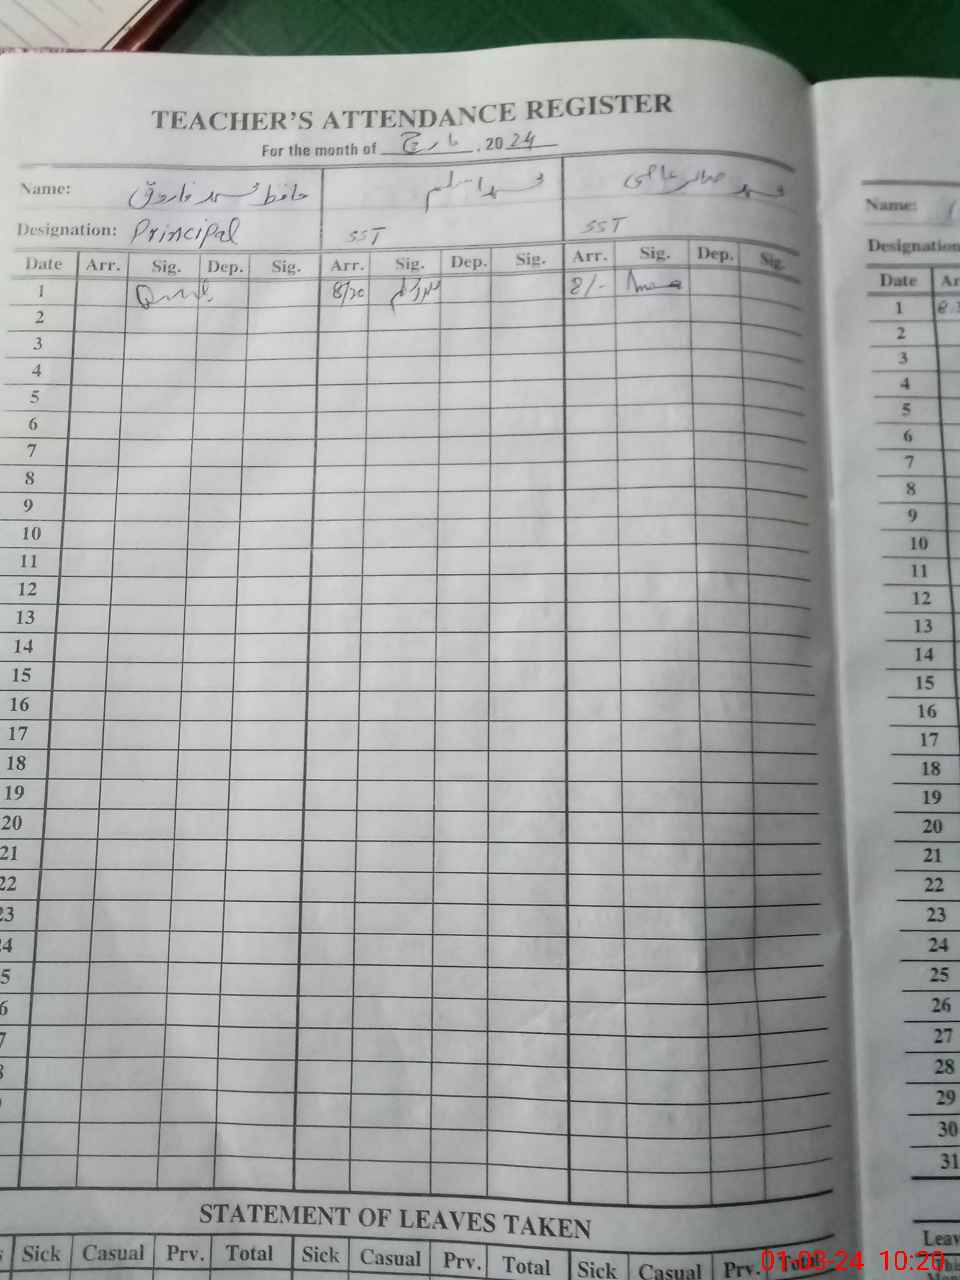 TEACHER'S ATTENDANCE REGISTER
For the month of مارچ , 2024
Name: حافظ محمد فاروق محمد اسلم محمد صابر
Designation: Principal SST SST
Date Arr. Sig. Dep. Sig. Arr. Sig. Dep. Sig. Arr. Sig. Dep. Sig.
1 8/20 8/-
2
3
4
5
6
7
8
9
10
11
12
13
14
15
16
17
18
19
20
21
22
23
STATEMENT OF LEAVES TAKEN
Sick Casual Prv. Total Sick Casual Prv. Total Sick Casual Prv.
Name:
Designation
Date Ar
1
2
3
4
5
6
7
8
9
10
11
12
13
14
15
16
17
18
19
20
21
22
23
24
25
26
27
28
29
30
31
Leav
01-03-24 10:20